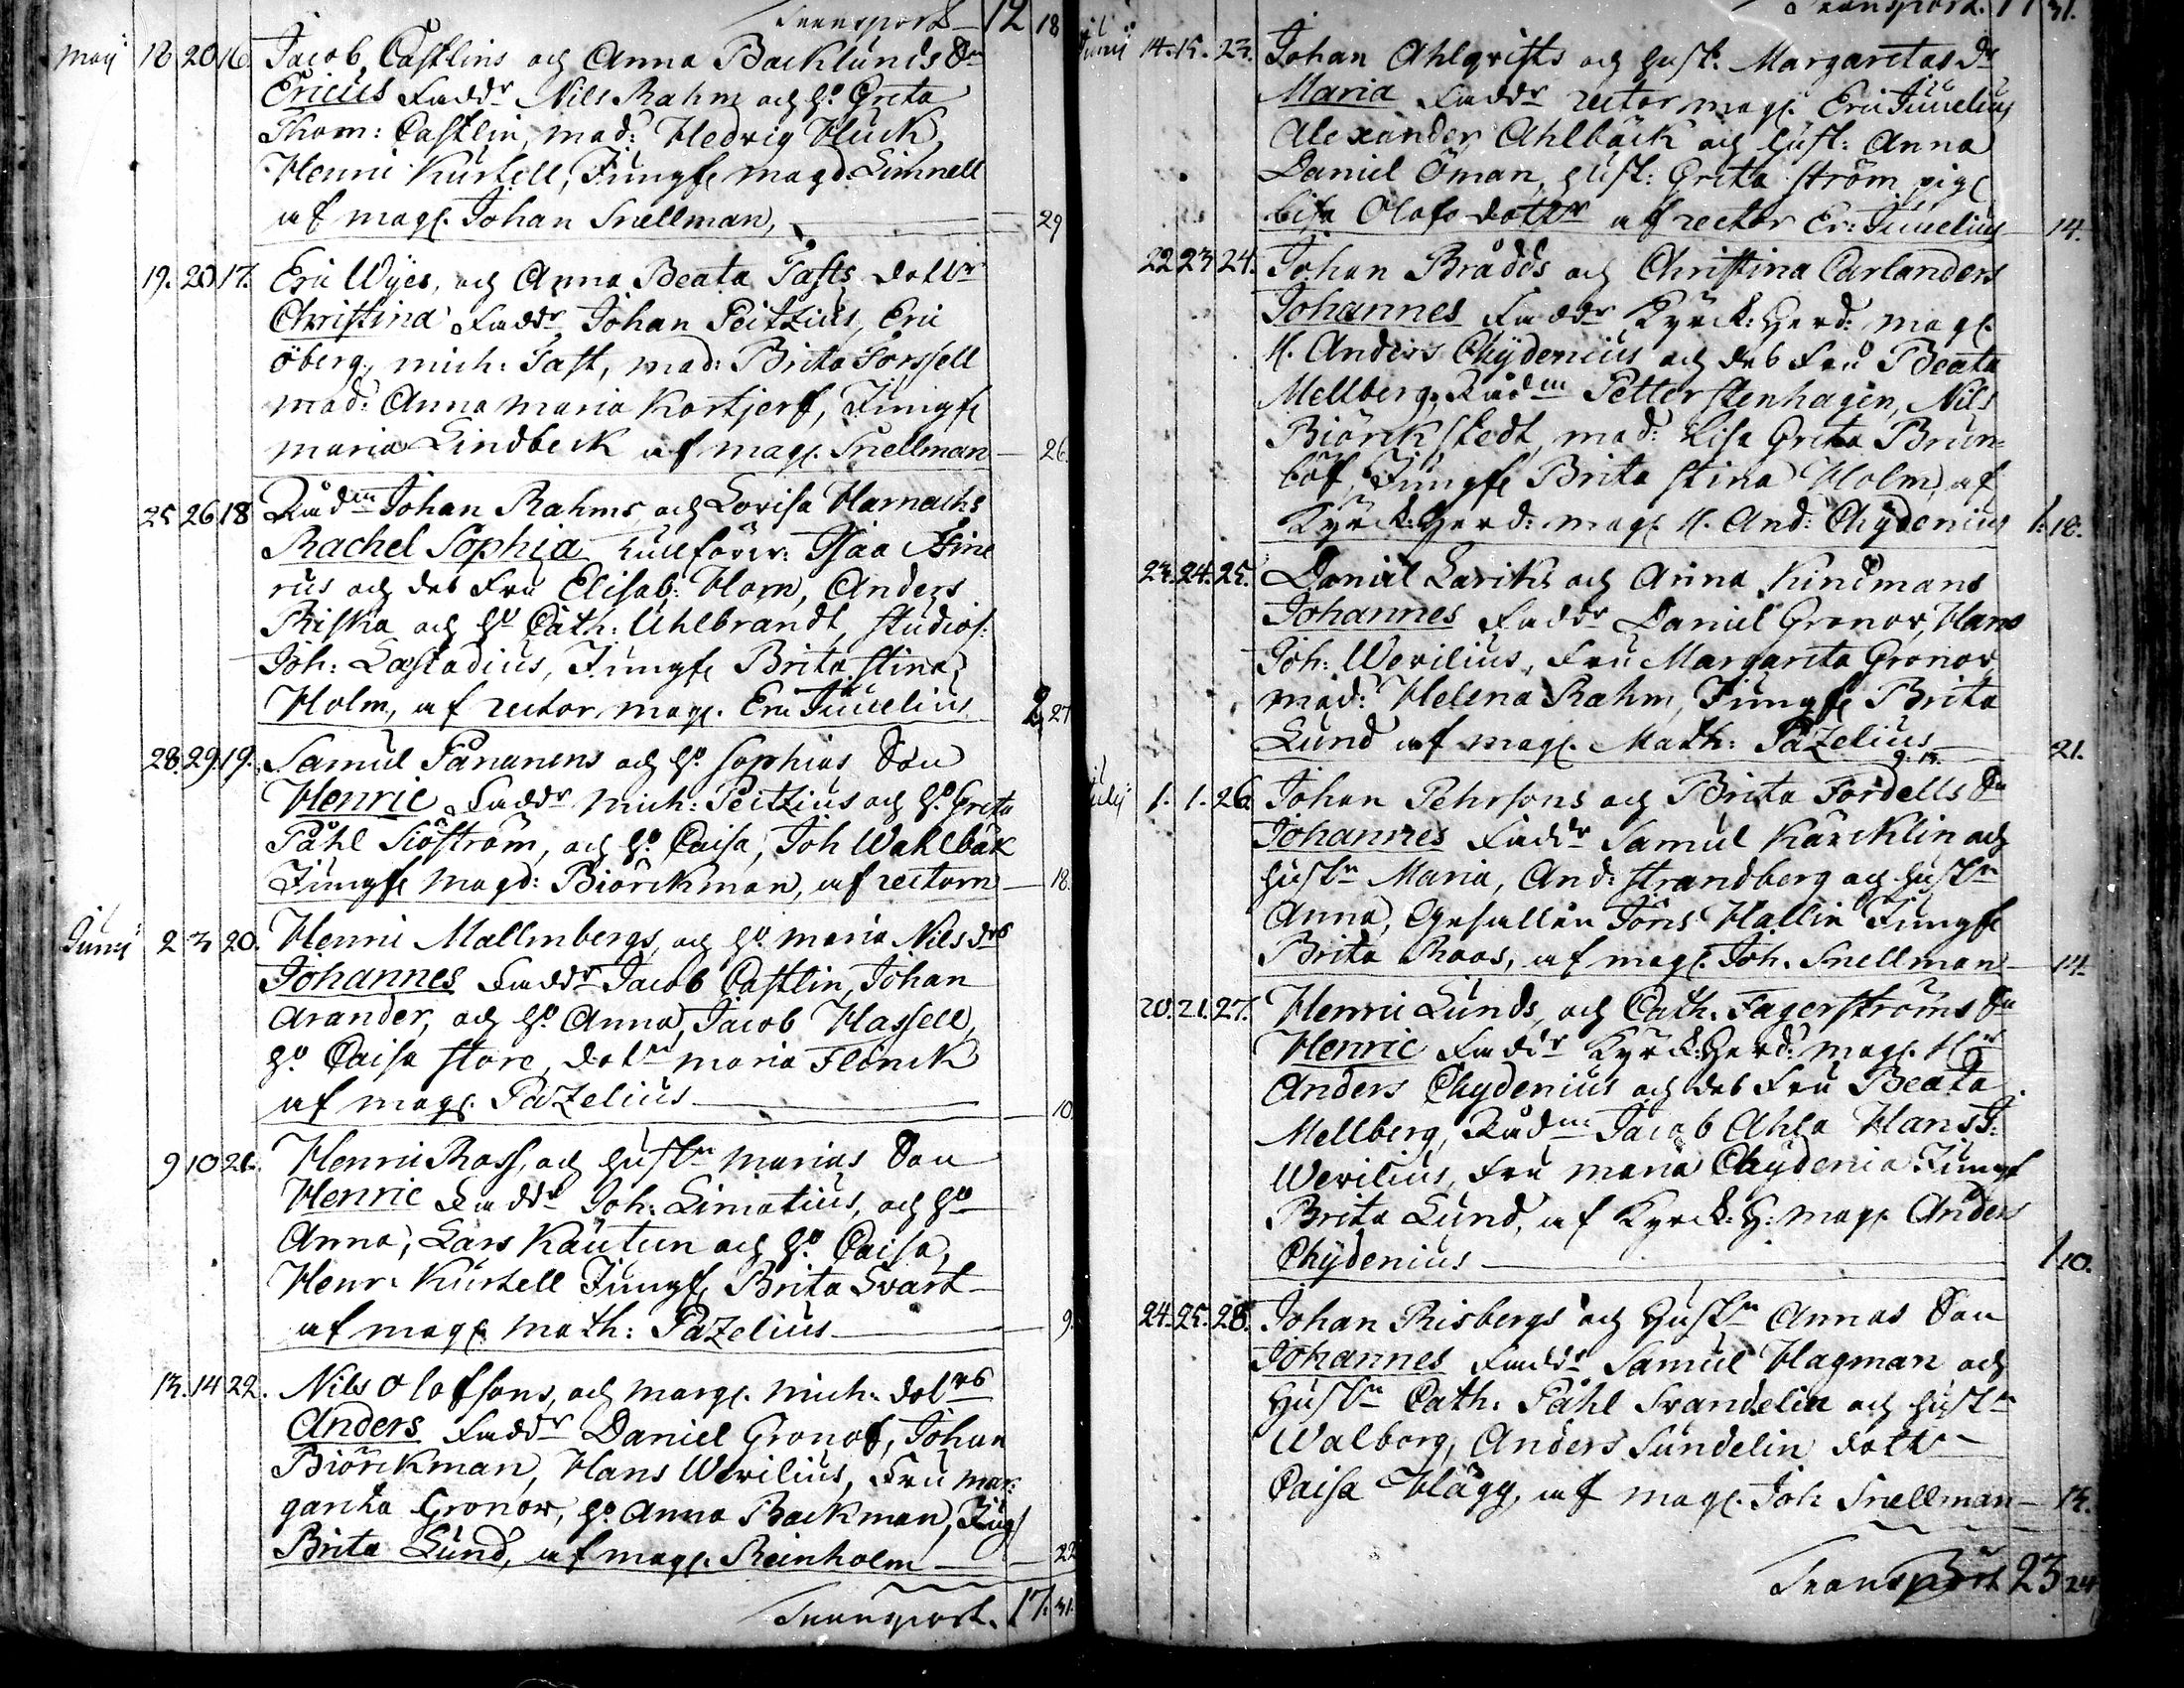 Transport 12 18
Maij 18 20 16 Jacob Castlins och Anna Backlunds Sn
Ericus Faddr Nils Rahm och H. Greta
Thom: Castlin, mad: Hedvig Huck
Henric Kurtell, Jungfr Magd: Limnell
af mag. Johan Snellman, 29
19. 20 17. Eric Wijes, och Anna Beata Tasts dottr
Christina Faddr Johan Peitzius, Eric
öberg, mich: Tast, mad: Brita Forssell
mad: Anna Maria Kortjerf, Jungfr
Maria Lindbeck af mag. Snellman 26.
25 26 18 Rådm Johan Rahms och Lovisa Harnachs
Rachel Sophia Isac
rus och des Fru Elisab: Horn, Anders
Riska och H. Cath: Uhlbrandt, studios:
Joh: Læstadius, Jungfr Brita stina
Holm, af rector mag. Eric Juvelius 2 27
28. 29 19. Samuel Pananens och H. Sophias Son
Henric Faddr Mich: Peitzius och H. Greta
Påhl Siöström, och H. Caisa, Joh Wahlbäk
Jungfr Magd: Biörckman, af rectorn 18.
Junij 2 3 20. Henric Mallmbergs, och H. Maria Nils drs
Johannes Faddr Jacob Castlin, Johan
Arander, och H. Anna, Jacob Hassell,
H. Caisa store, dotr Maria Flinck
af mag. Pazelius 10
9 10 21. Henric Ross, och Hustr Marias Son
Henric Faddr Joh: Limatius, och H.
Anna, Lars Kauteen och H. Caisa,
Henr: Kurtell Jungfr Brita Svart
af mag. Math: Pazelius 9.
13. 14 22. Nils Olofsons, och Marg. Mich: dotrs
Anders Faddr Daniel Gronof, Johan
Biörckman, Hans Wevilius, Fru Mar:
gareta Gronow, H. Anna Backman, Jug
Brita Lund, af mag. Reinholm 22
Transport. 17. 31.
Transport. 17 31.
Junij 14. 15. 23. Johan Ahlqvists och Hust: Margaretas Dr
Maria Faddr rector mag. Eric Juvelius
Alexander Ahlbäck och Hust: Anna
Daniel Öman, Hust: Greta ström pig
Lisa Olofs dottr af rector Er: Juvelius 14.
22 23 24. Johan Brådds och Christina Carlanders
Johannes Faddr Kyrck: Herd: mag.
H. Anders Chydenius och des Fru Beata
Mellberg, Rådm Petter Stenhagen, Nils
Biörckstedt, mad: Lisa Greta Brun=
löf, Jungfr Brita stina Holm, af
Kyrck: Herd: mag. H. And: Chydenius 1. 10.
23. 24. 25. Daniel Lariks och Anna Kindmans
Johannes Faddr Daniel Gronow, Hans
Joh: Wevilius, Fru Margareta Gronow,
mad: Helena Rahm, Jungfr Brita
Lund af mag. Math: Pazelius 21.
Julij 1. 1. 26. Johan Pehrsons och Brita Fordells Sn
Johannes Faddr Samuel Kärcklin och
Hustn Maria, And: Strandberg och Hustn
Anna, Gesällen Jöns Hallin Jungfr
Brita Roos, af mag. Joh. Snellman 14.
20. 21. 27. Henric Lunds, och Cath. Fagerströms Sn
Henric Faddr Kyrck: Herd: mag. Hr
Anders Chydenius och des Fru Beata
Mellberg, Rådm Jacob Ahla Hans J:
Wevilius, Fru Maria Chydenia Jungf
Brita Lund, af Kyrck: H: mag. Anders
Chydenius 1 10.
24. 25. 28. Johan Risbergs och Hustn Annas Son
Johannes Faddr Samuel Hagman och
Hustn Cath: Påhl Svandelin och Hustn
Walborg, Anders Sundelin dottr
Caisa Hägg, af mag. Joh Snellman 15.
Transport 23 24